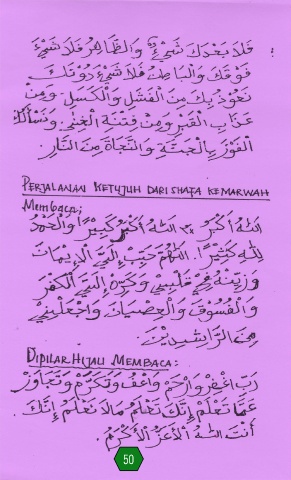 فَلَا بَعْدَكَ شَيْءٌ وَالظَّاهِرُ فَلَا شَيْءَ
فَوْقَكَ وَالْبَاطِنُ فَلَا شَيْءَ دُوْنَكَ
نَعُوْذُ بِكَ مِنَ الْفَشَلِ وَالْكَسَلِ وَمِنْ
عَذَابِ الْقَبْرِ وَمِنْ فِتْنَةِ الْغِنَى وَنَسْأَلُكَ
الْفَوْزَ بِالْجَنَّةِ وَالنَّجَاةَ مِنَ النَّارِ.
PERJALANAN KETUJUH DARI SHAFA KEMARWAH
Membaca;
اَللّٰهُ اَكْبَرُ ×٣ اَللّٰهُ اَكْبَرُ كَبِيْرًا وَالْحَمْدُ
لِلّٰهِ كَثِيْرًا. اَللّٰهُمَّ حَبِّبْ اِلَيَّ الْاِيْمَانَ
وَزَيِّنْهُ فِيْ قَلْبِيْ وَكَرِّهْ اِلَيَّ الْكُفْرَ
وَالْفُسُوْقَ وَالْعِصْيَانَ وَاجْعَلْنِيْ
مِنَ الرَّاشِدِيْنَ
DIPILAR HIJAU MEMBACA:
رَبِّ اغْفِرْ وَارْحَمْ وَاعْفُ وَتَكَرَّمْ وَتَجَاوَزْ
عَمَّا تَعْلَمُ اِنَّكَ تَعْلَمُ مَا لَا نَعْلَمُ اِنَّكَ
اَنْتَ اللّٰهُ الْاَعَزُّ الْاَكْرَمُ.
50